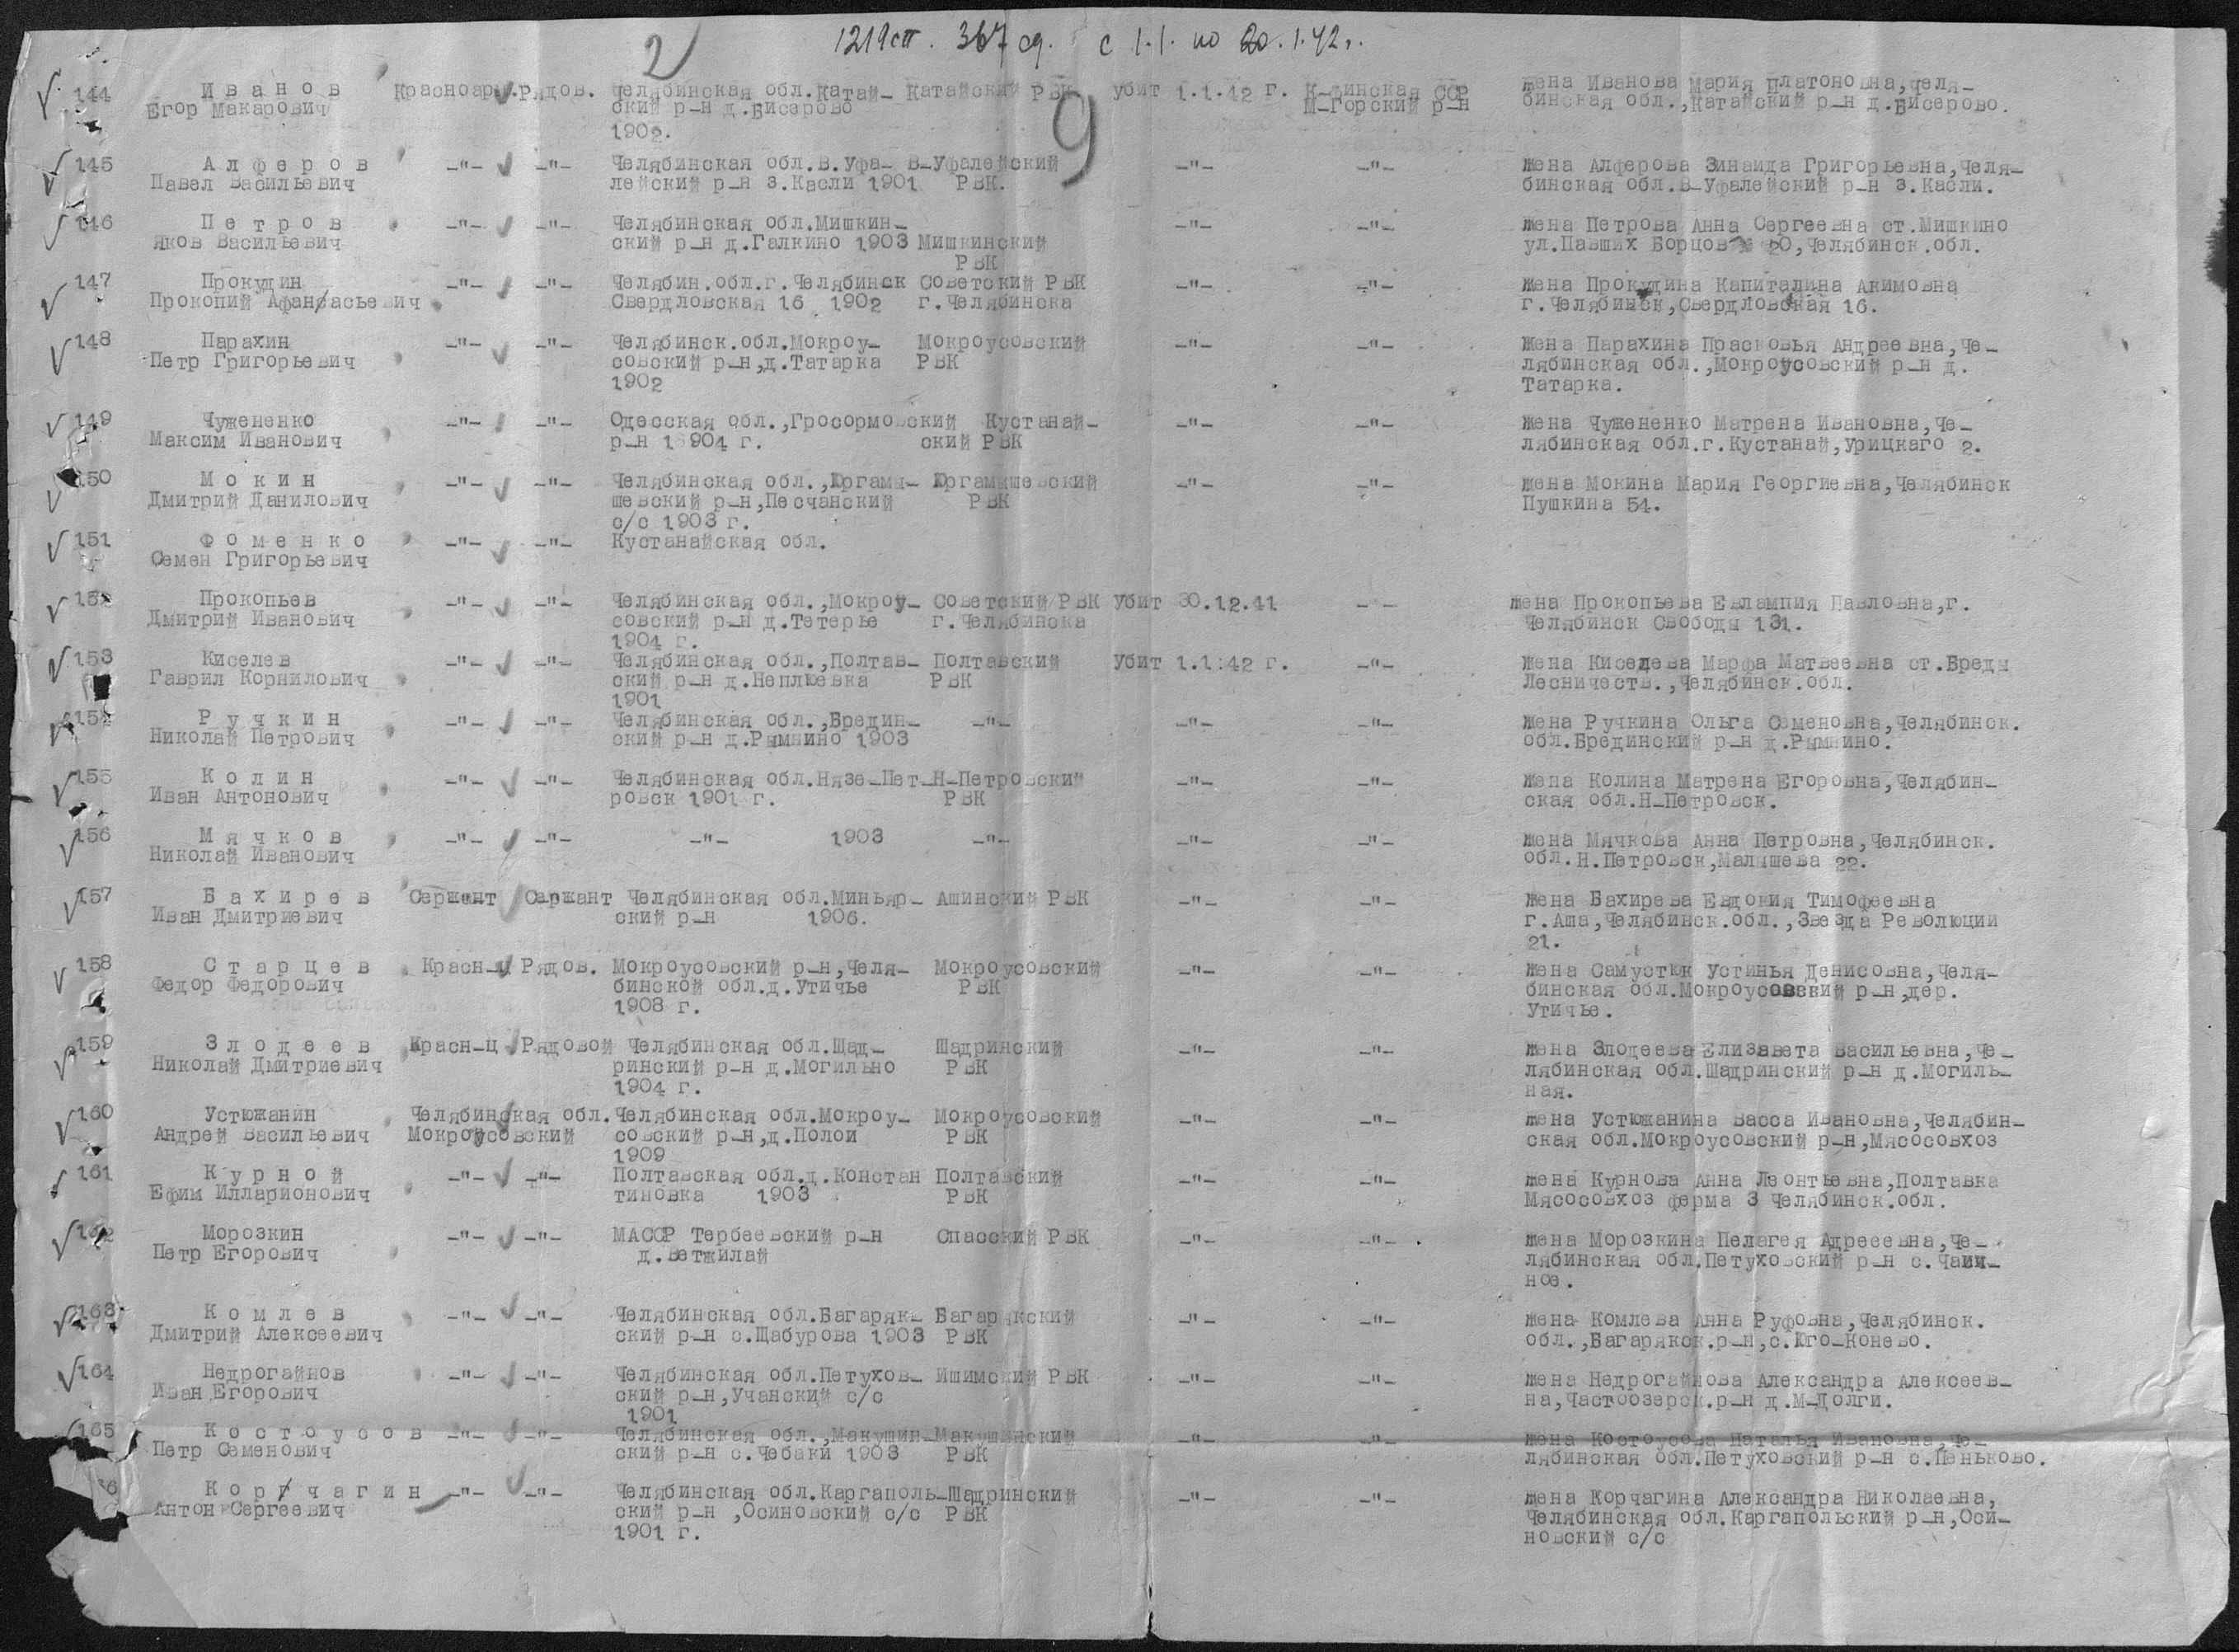 2
1219 сп. 367 сд. с 1.1. по 20.1.42 г.
9
144 Иванов Красноарм. Рядов. Челябинская обл.Катай- Катайский РВК убит 1.1.42 г. К-финская ССР жена Иванова Мария Платоновна,Челя-
Егор Макарович ский р-н д.Бисерово М-Горский р-н бинская обл.,Катайский р-н д.Бисерово.
1902.
145 Алферов -"- -"- Челябинская обл.В.Уфа- В-Уфалейский -"- -"- жена Алферова Зинаида Григорьевна,Челя-
Павел Васильевич лейский р-н з.Касли 1901 РВК. бинская обл.В-Уфалейский р-н з.Касли.
146 Петров -"- -"- Челябинская обл.Мишкин- -"- -"- жена Петрова Анна Сергеевна ст.Мишкино
Яков Васильевич ский р-н д.Галкино 1903 Мишкинский ул.Павших Борцов Челябинск.обл.
РВК
147 Прокудин -"- -"- Челябин.обл.г.Челябинск Советский РВК -"- -"- жена Прокудина Капиталина Акимовна
Прокопий Афанасьевич Свердловская 16 1902 г.Челябинска г.Челябинск,Свердловская 16.
148 Парахин -"- -"- Челябинск.обл.Мокроу- Мокроусовский -"- -"- Жена Парахина Прасковья Андреевна,Че-
Петр Григорьевич совский р-н,д.Татарка РВК лябинская обл.,Мокроусовский р-н д.
1902 Татарка.
149 Чужененко -"- -"- Одесская обл.,Гросормовский Кустанай- -"- -"- Жена Чужененко Матрена Ивановна,Че-
Максим Иванович р-н 1904 г. ский РВК лябинская обл.г.Кустанай,Урицкаго 2.
150 Мокин -"- -"- Челябинская обл.,Юргамы- Юргамышевский -"- -"- жена Мокина Мария Георгиевна,Челябинск
Дмитрий Данилович шевский р-н,Песчанский РВК Пушкина 54.
с/с 1903 г.
151 Фоменко -"- -"- Кустанайская обл.
Семен Григорьевич
152 Прокопьев -"- -"- Челябинская обл.,Мокроу- Советский РВК Убит 30.12.41 - - жена Прокопьева Евлампия Павловна,г.
Дмитрий Иванович совский р-н д.Тетерье г.Челябинска Челябинск Свободы 131.
1904 г.
153 Киселев -"- -"- Челябинская обл.,Полтав- Полтавский Убит 1.1.42 г. -"- Жена Киселева Марфа Матвеевна ст.Бреды
Гаврил Корнилович ский р-н д.Неплюевка РВК Лесничеств.,Челябинск.обл.
1901
154 Ручкин -"- -"- Челябинская обл.,Бредин- -"- -"- -"- жена Ручкина Ольга Семеновна,Челябинск.
Николай Петрович ский р-н д.Рымнино 1903 обл.Брединский р-н д.Рымнино.
155 Колин -"- -"- Челябинская обл.Нязе-Пет- Н-Петровский -"- -"- Жена Колина Матрена Егоровна,Челябин-
Иван Антонович ровск 1901 г. РВК ская обл.Н-Петровск.
156 Мячков -"- -"- -"- 1903 -"- -"- -"- жена Мячкова Анна Петровна,Челябинск.
Николай Иванович обл.Н.Петровск,Малышева 22.
157 Бахирев Сержант Сержант Челябинская обл.Миньяр- Ашинский РВК -"- -"- Жена Бахирева Евдокия Тимофеевна
Иван Дмитриевич ский р-н 1906. г.Аша,Челябинск.обл.,Звезда Революции
21.
158 Старцев Красн-ц Рядов. Мокроусовский р-н,Челя- Мокроусовский -"- -"- жена Самустюк Устинья Денисовна,Челя-
Федор Федорович бинской обл.д.Утичье РВК бинская обл.Мокроусовский р-н,дер.
1908 г. Утичье.
159 Злодеев Красн-ц Рядовой Челябинская обл.Шад- Шадринский -"- -"- жена Злодеева Елизавета Васильевна,Че-
Николай Дмитриевич ринский р-н д.Могильно РВК лябинская обл.Шадринский р-н д.Могиль-
1904 г. ная.
160 Устюжанин Челябинская обл. Челябинская обл.Мокроу- Мокроусовский -"- -"- жена Устюжанина Васса Ивановна,Челябин-
Андрей Васильевич Мокроусовский совский р-н,д.Полои РВК ская обл.Мокроусовский р-н,Мясосовхоз
1909
161 Курной -"- -"- Полтавская обл.д.Констан Полтавский -"- -"- жена Курнова Анна Леонтьевна,Полтавка
Ефим Илларионович тиновка 1903 РВК Мясосовхоз ферма 3 Челябинск.обл.
162 Морозкин -"- -"- МАССР Тербеевский р-н Спасский РВК -"- -"- жена Морозкина Пелагея Адреевна,Че-
Петр Егорович д.Ветжилай лябинская обл.Петуховский р-н с.Чаич-
ное.
163 Комлев -"- -"- Челябинская обл.Багаряк- Багарякский -"- -"- жена Комлева Анна Руфовна,Челябинск.
Дмитрий Алексеевич ский р-н с.Щабурова 1903 РВК обл.,Багарякск.р-н,с.Юго-Конево.
164 Недрогайнов -"- -"- Челябинская обл.Петухов- Ишимский РВК -"- -"- жена Недрогайнова Александра Алексеев-
Иван Егорович ский р-н,Учанский с/с на,Частоозерск.р-н д.М-Долги.
1901
165 Костоусов -"- -"- Челябинская обл.,Макушин- Макушинский -"- -"- жена Костоусова Наталья Ивановна,Че-
Петр Семенович ский р-н с.Чебаки 1903 РВК лябинская обл.Петуховский р-н с.Пеньково.
6 Корчагин -"- -"- Челябинская обл.Каргаполь- Шадринский -"- -"- жена Корчагина Александра Николаевна,
Антон Сергеевич ский р-н ,Осиновский с/с РВК Челябинская обл.Каргапольский р-н,Оси-
1901 г. новский с/с